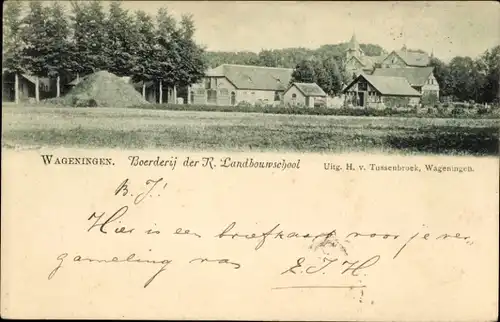 WAGENINGEN. Boerderij der R. Landbouwschool
Uitg. H. v. Tussenbroek, Wageningen.
B. J!
Hier is een briefkaart voor je ver-
gameling van
E. J. H.